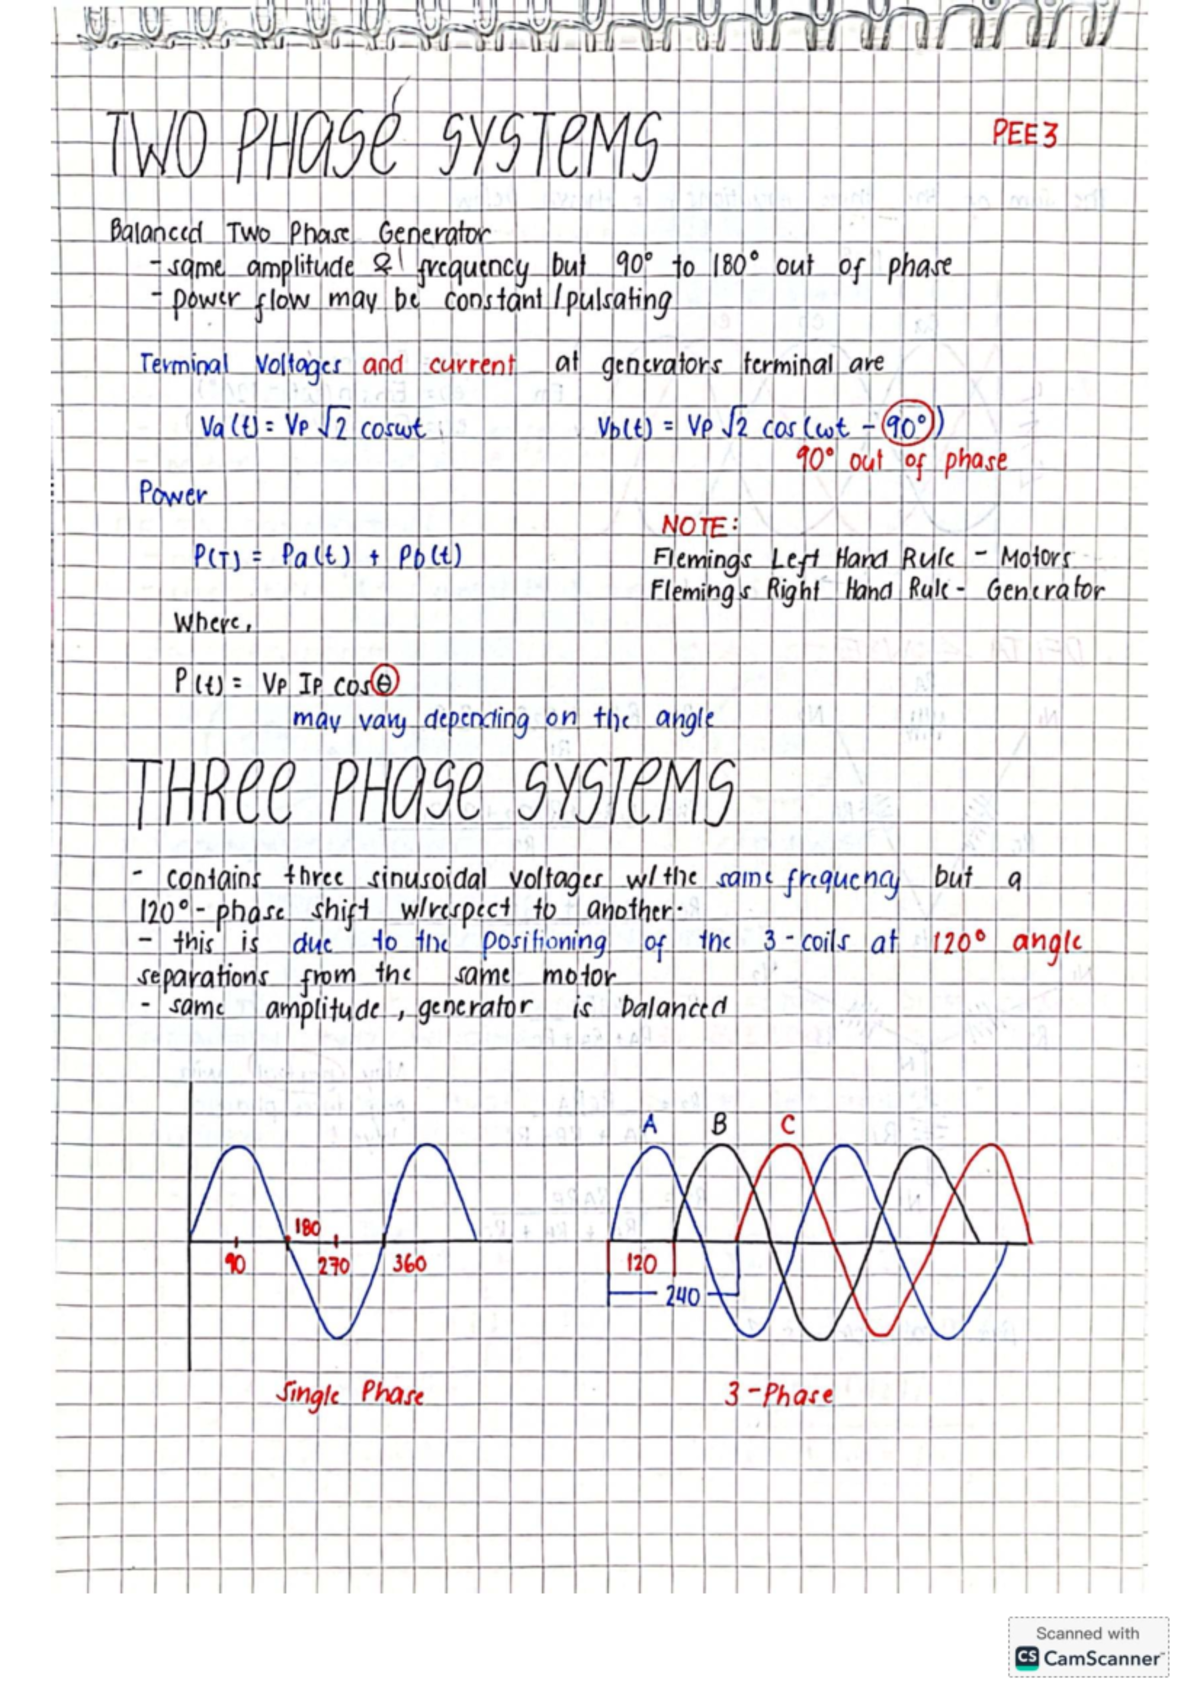 TWO PHASE SYSTEMS
PEE3
Balanced Two Phase Generator
- same amplitude & frequency but 90° to 180° out of phase
- power flow may be constant / pulsating
Terminal Voltages and current at generators terminal are
Va(t) = Vp √2 cosωt
Vb(t) = Vp √2 cos(ωt - 90°)
90° out of phase
Power
NOTE:
P(T) = Pa(t) + Pb(t)
Flemings Left Hand Rule - Motors
Fleming's Right Hand Rule - Generator
Where,
P(t) = Vp Ip cos θ
may vary depending on the angle
THREE PHASE SYSTEMS
- contains three sinusoidal voltages w/ the same frequency but a
120° - phase shift w/respect to another.
- this is due to the positioning of the 3 - coils at 120° angle
separations from the same motor
- same amplitude, generator is balanced
A B C
180
90 270 360
120
240
Single Phase
3-Phase
Scanned with
CS CamScanner